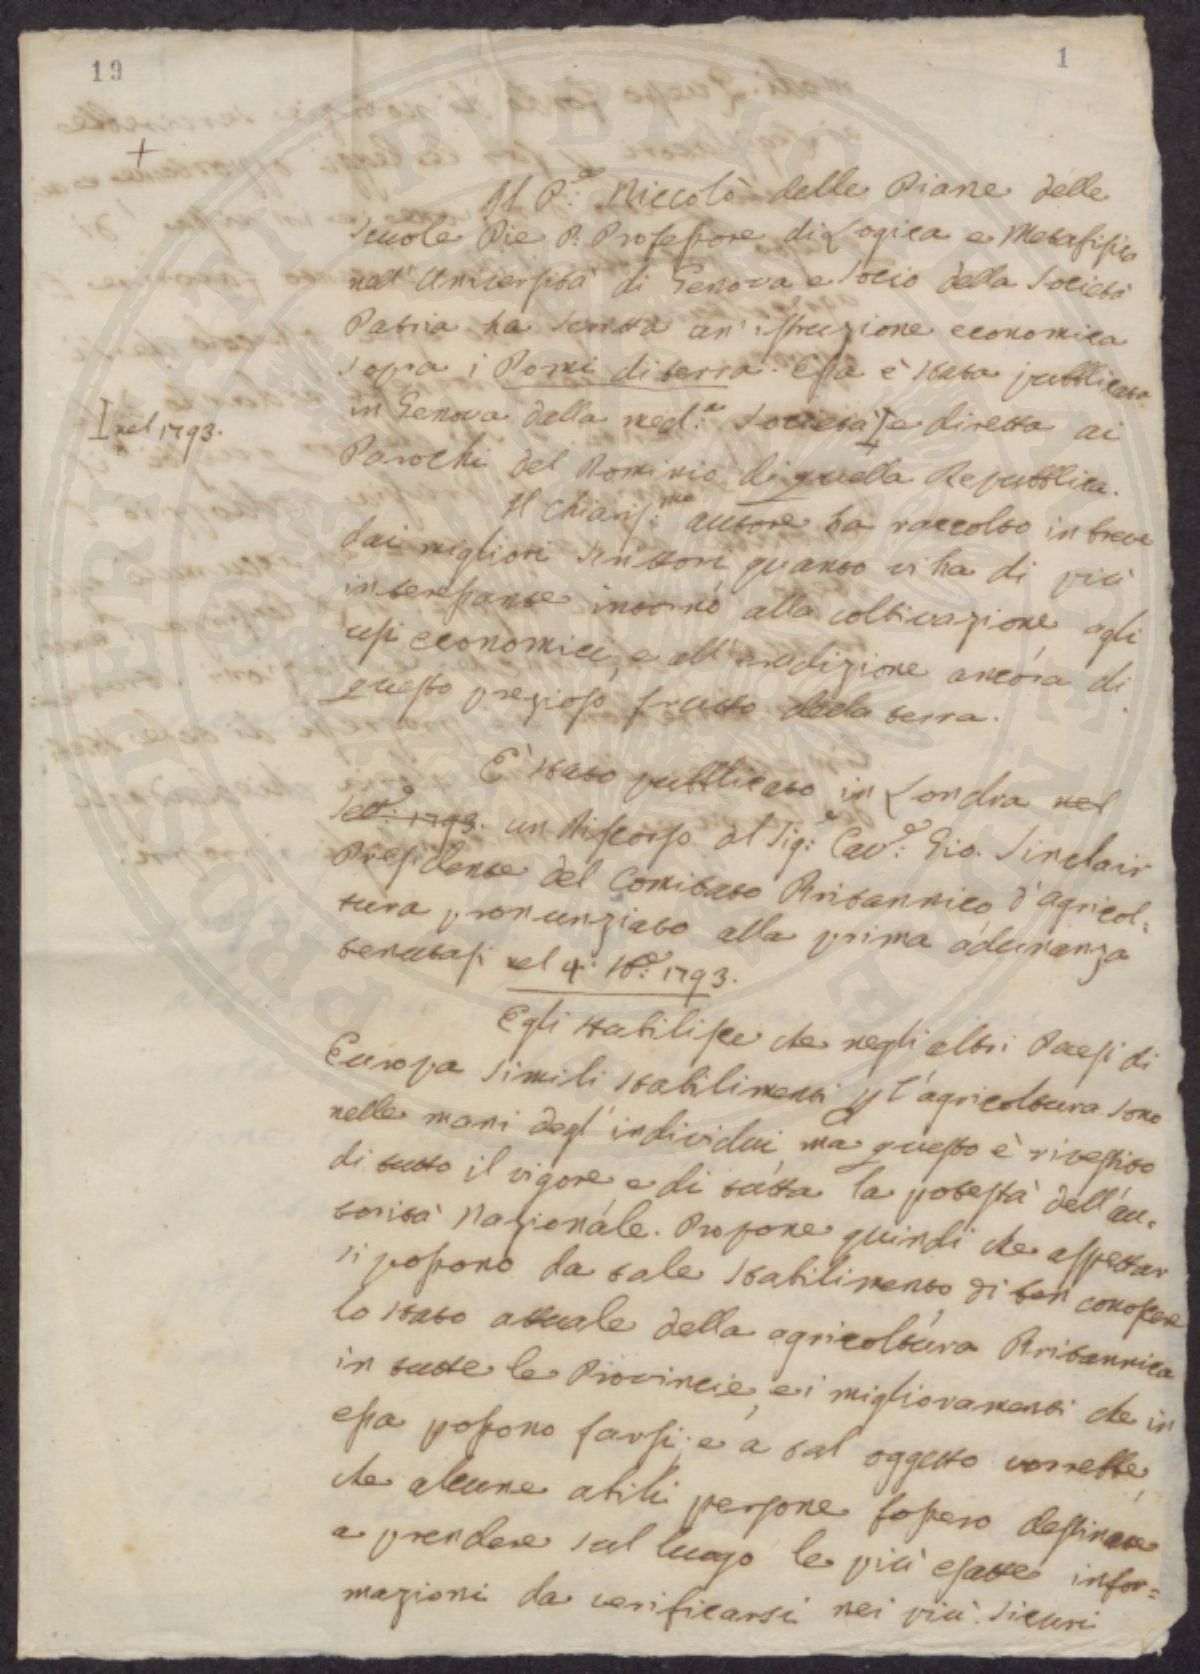 19
1
+
Il P.e Niccolò delle Piane delle
Scuole Pie P. Professore di Logica e Metafisica
nell'Università di Genova e Socio della Società
Patria ha scritta un'istruzione economica
sopra i Pomi di terra. Essa è stata pubblicata
in Genova dalla med.a Società I e diretta ai
I nel 1793.
Parochi del Dominio di quella Repubblica.
Il Chiariss.mo autore ha raccolto in breve
dai migliori scrittori quanto vi ha di più
interessante intorno alla coltivazione agli
usi economici, e all'erudizione ancora di
questo prezioso frutto della terra.
È stato pubblicato in Londra nel
Sett.e 1793. un Discorso del Sig.e Cav.e Gio. Sinclair
Presidente del Comitato Britannico d'agricol=
tura pronunziato alla prima adunanza
tenutasi nel 4.: 1793.
Egli stabilisce che negli altri Paesi di
Europa simili stabilimenti p l'agricoltura sono
nelle mani degl'individui ma questo è rivestito
di tutto il vigore e di tutta la potestà dell'au=
torità Nazionale. Propone quindi che aspettar
si possono da tale stabilimento di ben conoscere
lo stato attuale della agricoltura Britannica
in tutte le Provincie, e i miglioramenti che in
essa possono farsi; e a tal oggetto vorrebbe,
che alcune abili persone fossero destinate
a prendere sul luogo le più esatte infor=
mazioni da verificarsi nei più sicuri